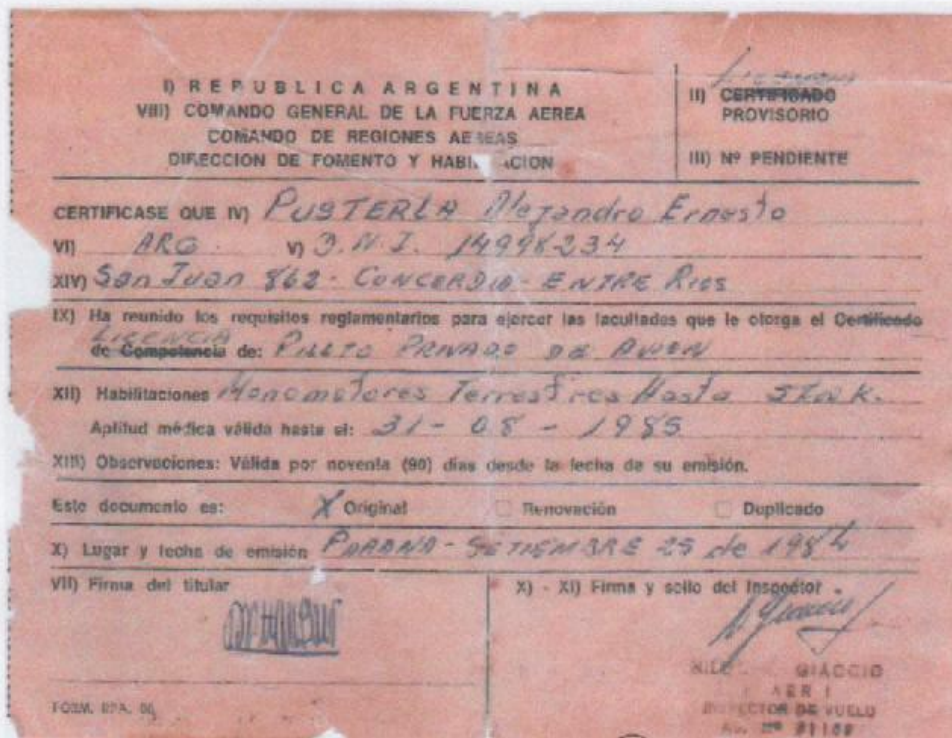 I) REPUBLICA ARGENTINA
VIII) COMANDO GENERAL DE LA FUERZA AEREA
COMANDO DE REGIONES AEREAS
DIRECCION DE FOMENTO Y
II) CERTIFICADO
PROVISORIO
III) Nº PENDIENTE
CERTIFICASE QUE IV) PUSTERLA Alejandro Ernesto
VI) ARG V) D.N.I. 14998234
XIV) San Juan 862 - CONCORDIA - ENTRE RIOS
IX) Ha reunido los requisitos reglamentarios para ejercer las facultades que le otorga el Certificado
LICENCIA
de Competencia de: PILOTO PRIVADO DE AVION
XII) Habilitaciones Monomotores Terrestres Hasta
Aptitud médica válida hasta el: 31 - 08 - 1985
XIII) Observaciones: Válida por noventa (90) días desde la fecha de su emisión.
Este documento es: X Original Renovación Duplicado
X) Lugar y fecha de emisión PARANA - SETIEMBRE 25 de 1984
VII) Firma del titular
X) - XI) Firma y sello del Inspector
GIACCIO
INSPECTOR DE VUELO
FORM. RPA. 06